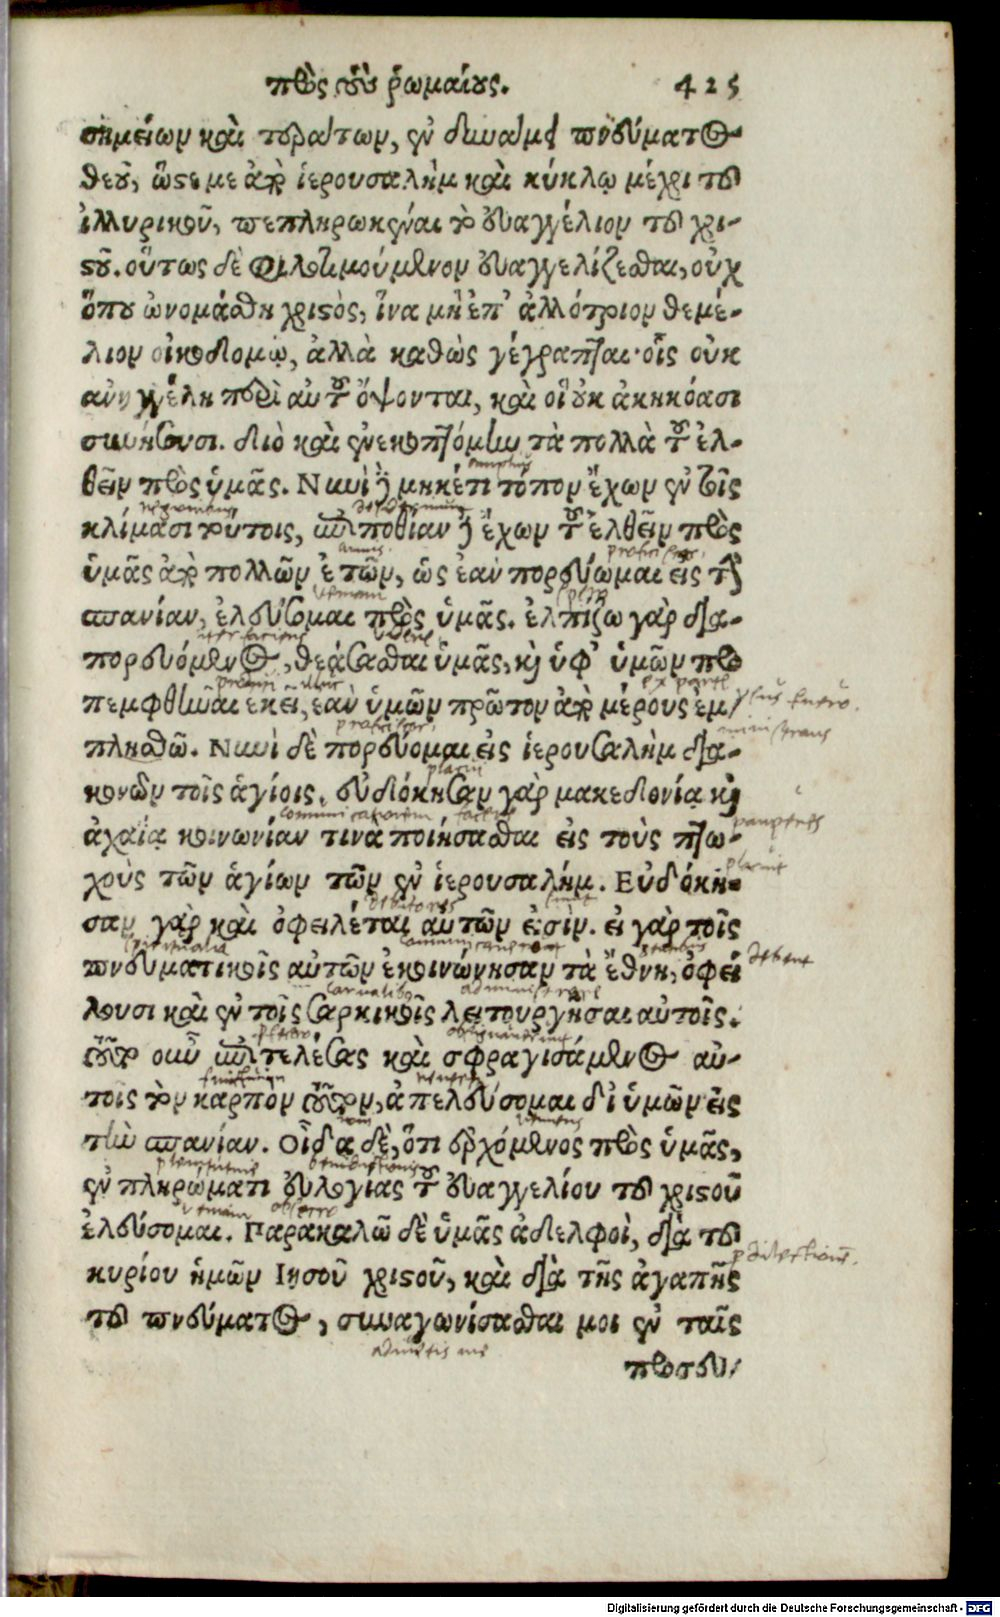 πρὸς τοὺς ῥωμαίους. 425
σημείων καὶ τεράτων, ἐν δυνάμει πνεύματος
θεοῦ, ὥστε με ἀπὸ ἱερουσαλὴμ καὶ κύκλῳ μέχρι τοῦ
ἰλλυρικοῦ, πεπληρωκέναι τὸ εὐαγγέλιον τοῦ χρι-
στοῦ. οὕτως δὲ φιλοτιμούμενον εὐαγγελίζεσθαι, οὐχ
ὅπου ὠνομάσθη χριστὸς, ἵνα μὴ ἐπ’ ἀλλότριον θεμέ-
λιον οἰκοδομῶ, ἀλλὰ καθὼς γέγραπται· οἷς οὐκ
ἀνηγγέλη περὶ αὐτοῦ ὄψονται, καὶ οἳ οὐκ ἀκηκόασι
συνήσουσι. διὸ καὶ ἐνεκοπτόμην τὰ πολλὰ τοῦ ἐλ-
θεῖν πρὸς ὑμᾶς. Νυνὶ δὲ μηκέτι τόπον ἔχων ἐν τοῖς
κλίμασι τούτοις, ἐπιποθίαν δὲ ἔχων τοῦ ἐλθεῖν πρὸς
ὑμᾶς ἀπὸ πολλῶν ἐτῶν, ὡς ἐὰν πορεύωμαι εἰς τὴν
σπανίαν, ἐλεύσομαι πρὸς ὑμᾶς. ἐλπίζω γὰρ δια-
πορευόμενος, θεάσασθαι ὑμᾶς, καὶ ὑφ’ ὑμῶν προ
πεμφθῆναι ἐκεῖ, ἐὰν ὑμῶν πρῶτον ἀπὸ μέρους ἐμ/
πλησθῶ. Νυνὶ δὲ πορεύομαι εἰς ἱερουσαλὴμ δια-
κονῶν τοῖς ἁγίοις. εὐδόκησαν γὰρ μακεδονία καὶ
ἀχαΐα κοινωνίαν τινα ποιήσασθαι εἰς τοὺς πτω-
χοὺς τῶν ἁγίων τῶν ἐν ἱερουσαλήμ. Εὐδόκη-
σαν γὰρ καὶ ὀφειλέται αὐτῶν εἰσίν. εἰ γὰρ τοῖς
πνευματικοῖς αὐτῶν ἐκοινώνησαν τὰ ἔθνη, ὀφεί
λουσι καὶ ἐν τοῖς σαρκικοῖς λειτουργῆσαι αὐτοῖς.
τοῦτο οὖν ἐπιτελέσας καὶ σφραγισάμενος αὐ-
τοῖς τὸν καρπὸν τοῦτον, ἀπελεύσομαι δι ὑμῶν εἰς
τὴν σπανίαν. Οἶδα δὲ, ὅτι ἐρχόμενος πρὸς ὑμᾶς,
ἐν πληρώματι εὐλογίας τοῦ εὐαγγελίου τοῦ χριστοῦ
ἐλεύσομαι. Παρακαλῶ δὲ ὑμᾶς ἀδελφοὶ, διὰ τοῦ
κυρίου ἡμῶν Ιησοῦ χριστοῦ, καὶ διὰ τῆς ἀγαπῆς
τοῦ πνεύματος, συναγωνίσασθαι μοι ἐν ταῖς
προσευ/
Digitalisierung gefördert durch die Deutsche Forschungsgemeinschaft - DFG